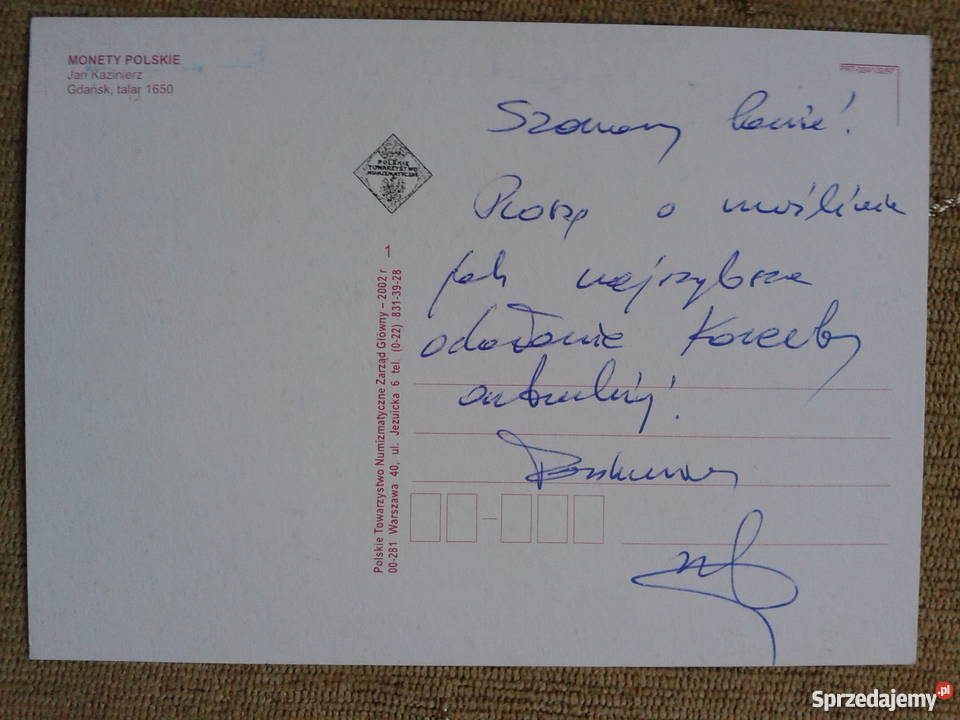 MONETY POLSKIE
Jan Kazinierz
Gdańsk, talar 1650
POLSKIE
TOWARZYSTWO
NUMIZMATYCZNE
1
Polskie Towarzystwo Numizmatyczne Zarząd Główny – 2002 r
00-281 Warszawa 40, ul. Jezuicka 6 tel. (0-22) 831-39-28
Szanowny Panie!
Proszę o możliwie
jak najszybsze
odesłanie
Sprzedajemy.pl